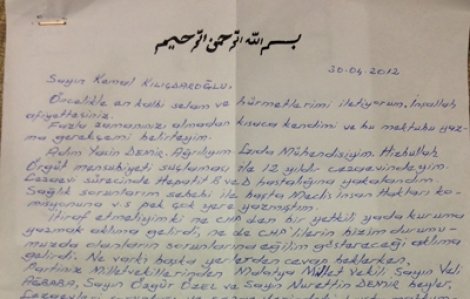 بسم الله الرحمن الرحيم
30-04-2012
Sayın Kemal KILIÇDAROĞLU,
Öncelikle en kalbi selam ve hürmetlerimi iletiyorum, İnşallah
afiyettesiniz.
Fazla zamanınızı almadan kısaca kendimi ve bu mektubu yaz-
ma gerekçemi belirteyim.
Adım Yasin DEMİR. Ağrılıyım. Gıda Mühendisiyim. Hizbullah
Örgüt mensubiyeti suçlaması ile 12 yıldır cezaevindeyim.
Cezaevi sürecinde Hepatit B ve D hastalığına yakalandım
Sağlık sorunlarım sebebi ile başta Meclis İnsan Hakları ko-
misyonuna v.s pek çok yere yazmıştım.
İtiraf etmeliyimki ne CHP den bir yetkili yada kuruma
yazmak aklıma gelirdi, ne de CHP'lilerin bizim durumu-
muzda olanların sorunlarına eğilim göstereceği aklıma
gelirdi. Ne varki başka yerlerden cevap beklerken,
Partiniz Milletvekillerinden Malatya Millet Vekili Sayın Veli
AĞBABA, Sayın Özgür ÖZEL ve Sayın Nurettin DEMİR beyler,